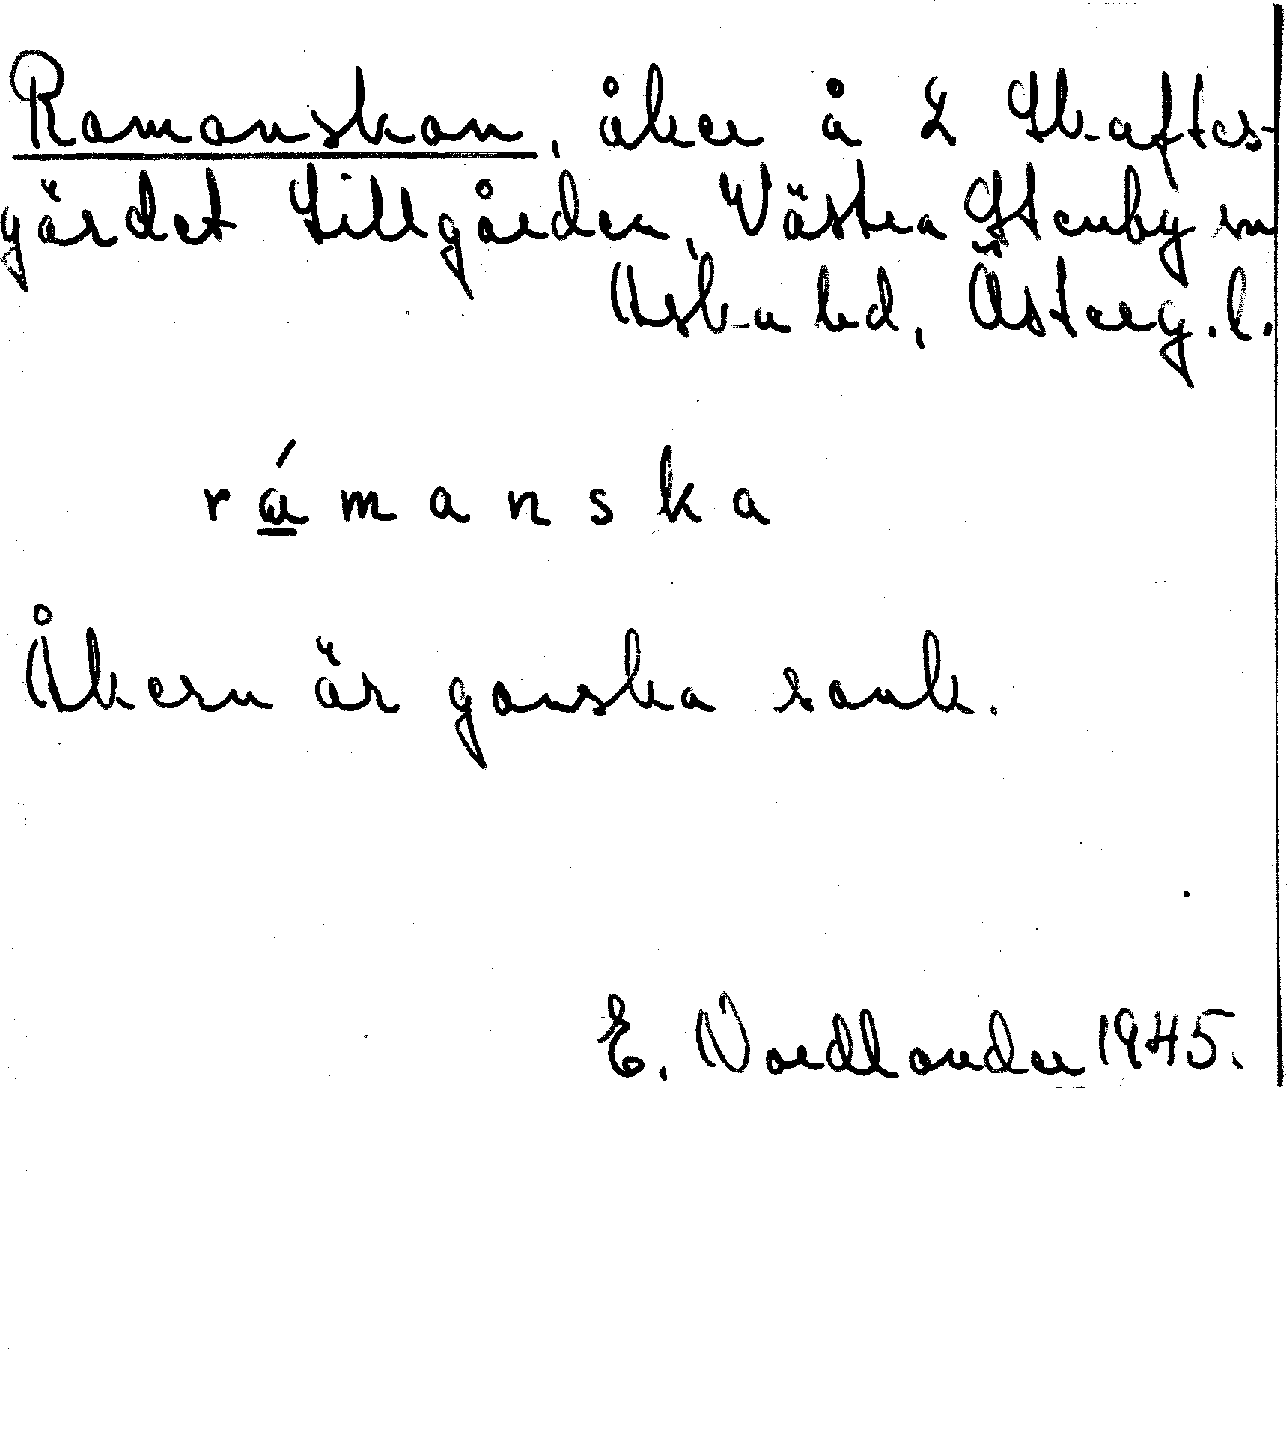 Ramanskan, åker å 2 Skaftes-
gärdet Lillgården, Västra Stenby sn
Aska hd, Österg. l.
rámanska
Åkern är ganska sank.
E. Nordlander 1945.